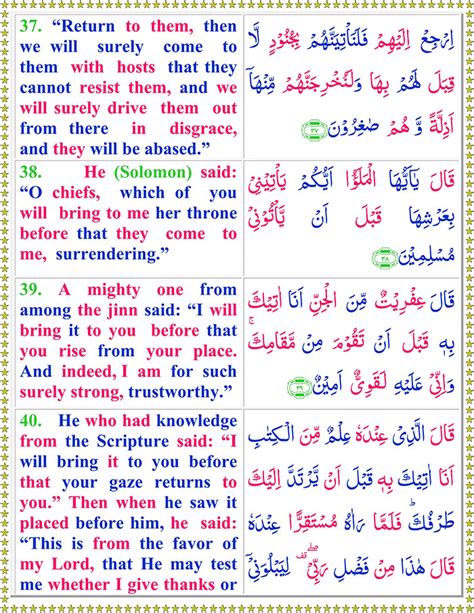 37. "Return to them, then
we will surely come to
them with hosts that they
cannot resist them, and we
will surely drive them out
from there in disgrace,
and they will be abased."
اِرْجِعْ اِلَيْهِمْ فَلَنَاْتِيَنَّهُمْ بِجُنُوْدٍ لَّا
قِبَلَ لَهُمْ بِهَا وَلَنُخْرِجَنَّهُمْ مِّنْهَاۤ
اَذِلَّةً وَّ هُمْ صٰغِرُوْنَ ۳۷
38. He (Solomon) said:
"O chiefs, which of you
will bring to me her throne
before that they come to
me, surrendering."
قَالَ يٰۤاَيُّهَا الْمَلَؤُا اَيُّكُمْ يَاْتِيْنِيْ
بِعَرْشِهَا قَبْلَ اَنْ يَّاْتُوْنِيْ
مُسْلِمِيْنَ ۳۸
39. A mighty one from
among the jinn said: "I will
bring it to you before that
you rise from your place.
And indeed, I am for such
surely strong, trustworthy."
قَالَ عِفْرِيْتٌ مِّنَ الْجِنِّ اَنَا اٰتِيْكَ
بِهٖ قَبْلَ اَنْ تَقُوْمَ مِنْ مَّقَامِكَ ۚ
وَاِنِّيْ عَلَيْهِ لَقَوِيٌّ اَمِيْنٌ ۳۹
40. He who had knowledge
from the Scripture said: "I
will bring it to you before
that your gaze returns to
you." Then when he saw it
placed before him, he said:
"This is from the favor of
my Lord, that He may test
me whether I give thanks or
قَالَ الَّذِيْ عِنْدَهٗ عِلْمٌ مِّنَ الْكِتٰبِ
اَنَا اٰتِيْكَ بِهٖ قَبْلَ اَنْ يَّرْتَدَّ اِلَيْكَ
طَرْفُكَ ؕ فَلَمَّا رَاٰهُ مُسْتَقِرًّا عِنْدَهٗ
قَالَ هٰذَا مِنْ فَضْلِ رَبِّيْ ۖ لِيَبْلُوَنِيْۤ